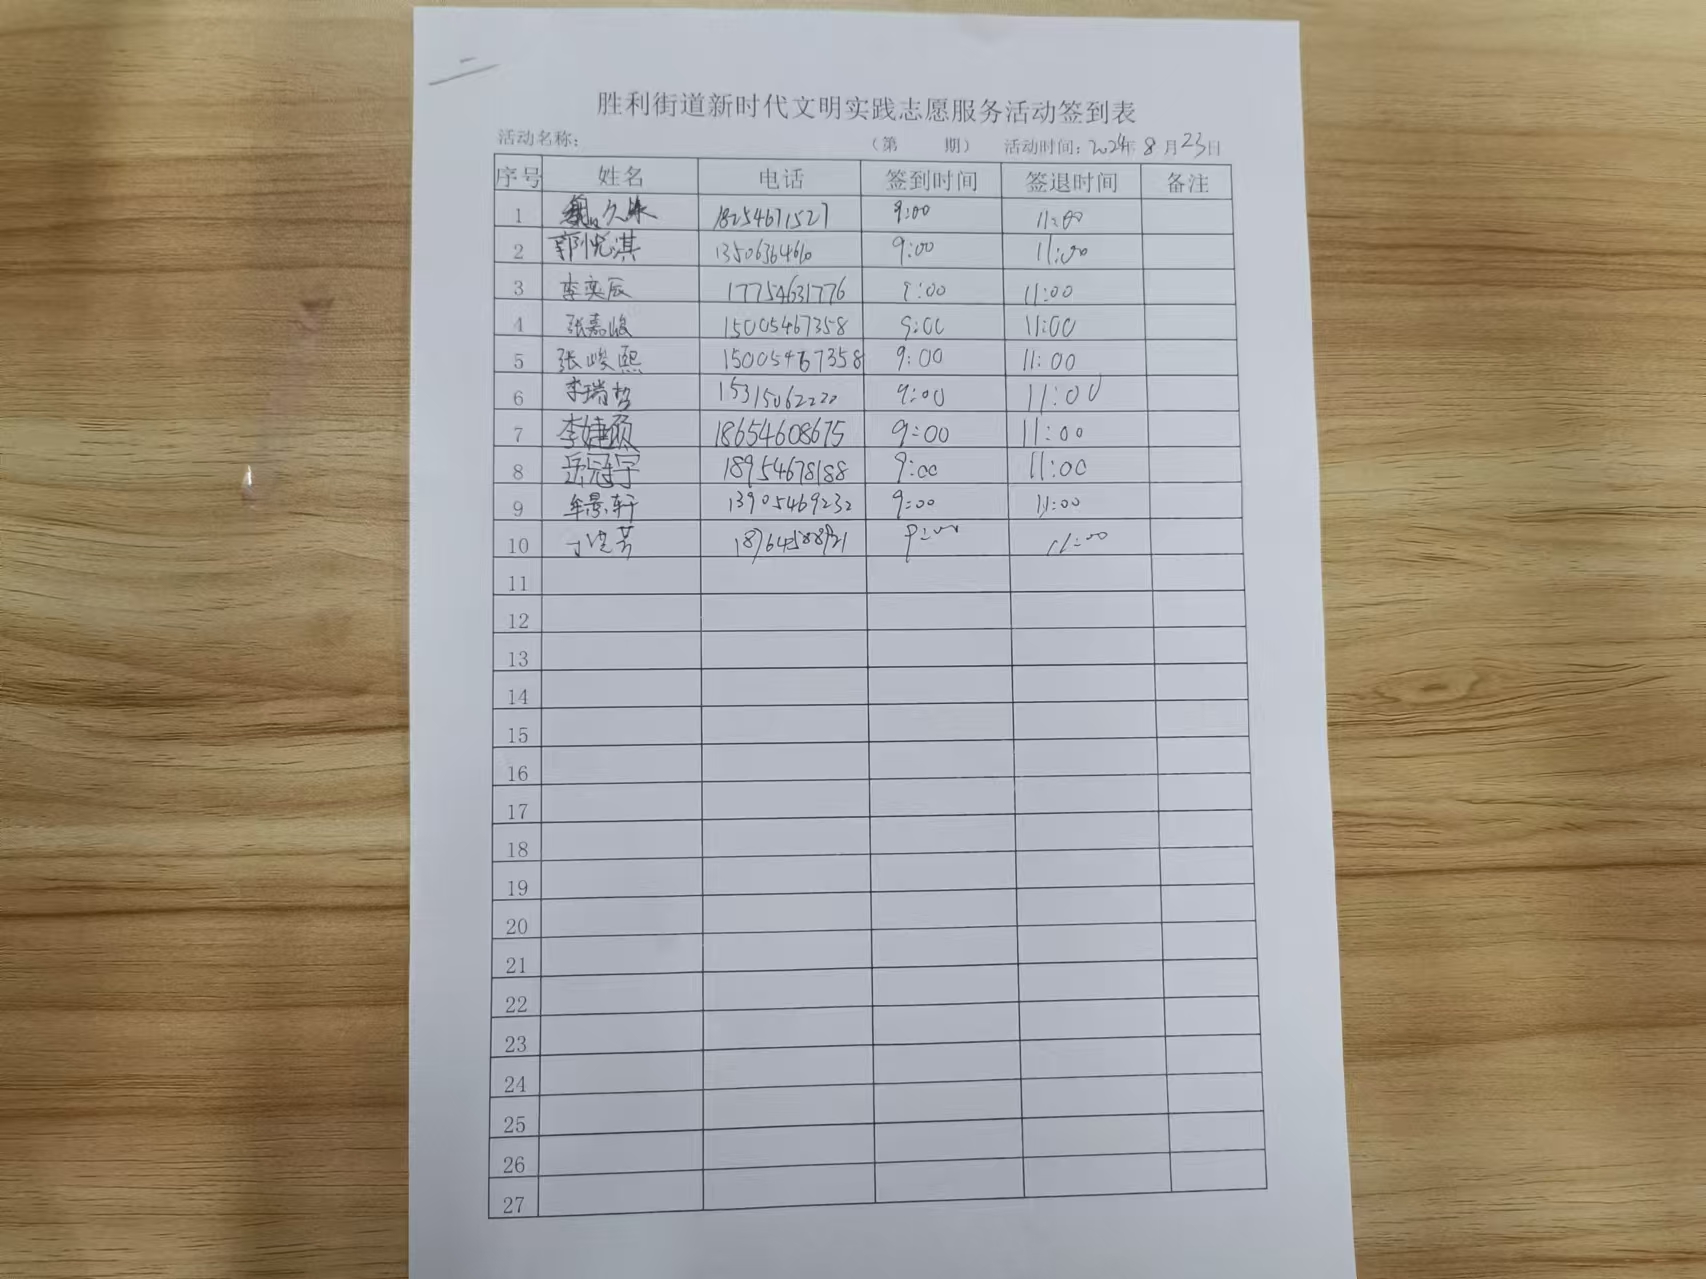 二
胜利街道新时代文明实践志愿服务活动签到表
活动名称： （第 期） 活动时间：2024年 8 月 23日
序号 姓名 电话 签到时间 签退时间 备注
1 久 18254671527 9:00 11:00
2 郭悦淇 13506364610 9:00 11:00
3 李奕辰 17754631776 9:00 11:00
4 张嘉峻 15005467358 9:00 11:00
5 张峻熙 15005467358 9:00 11:00
6 李瑞哲 15315062222 9:00 11:00
7 李婕硕 18654608675 9:00 11:00
8 岳冠宇 18954678188 9:00 11:00
9 牟景轩 13905469232 9:00 11:00
10 9:00 11:00
11
12
13
14
15
16
17
18
19
20
21
22
23
24
25
26
27